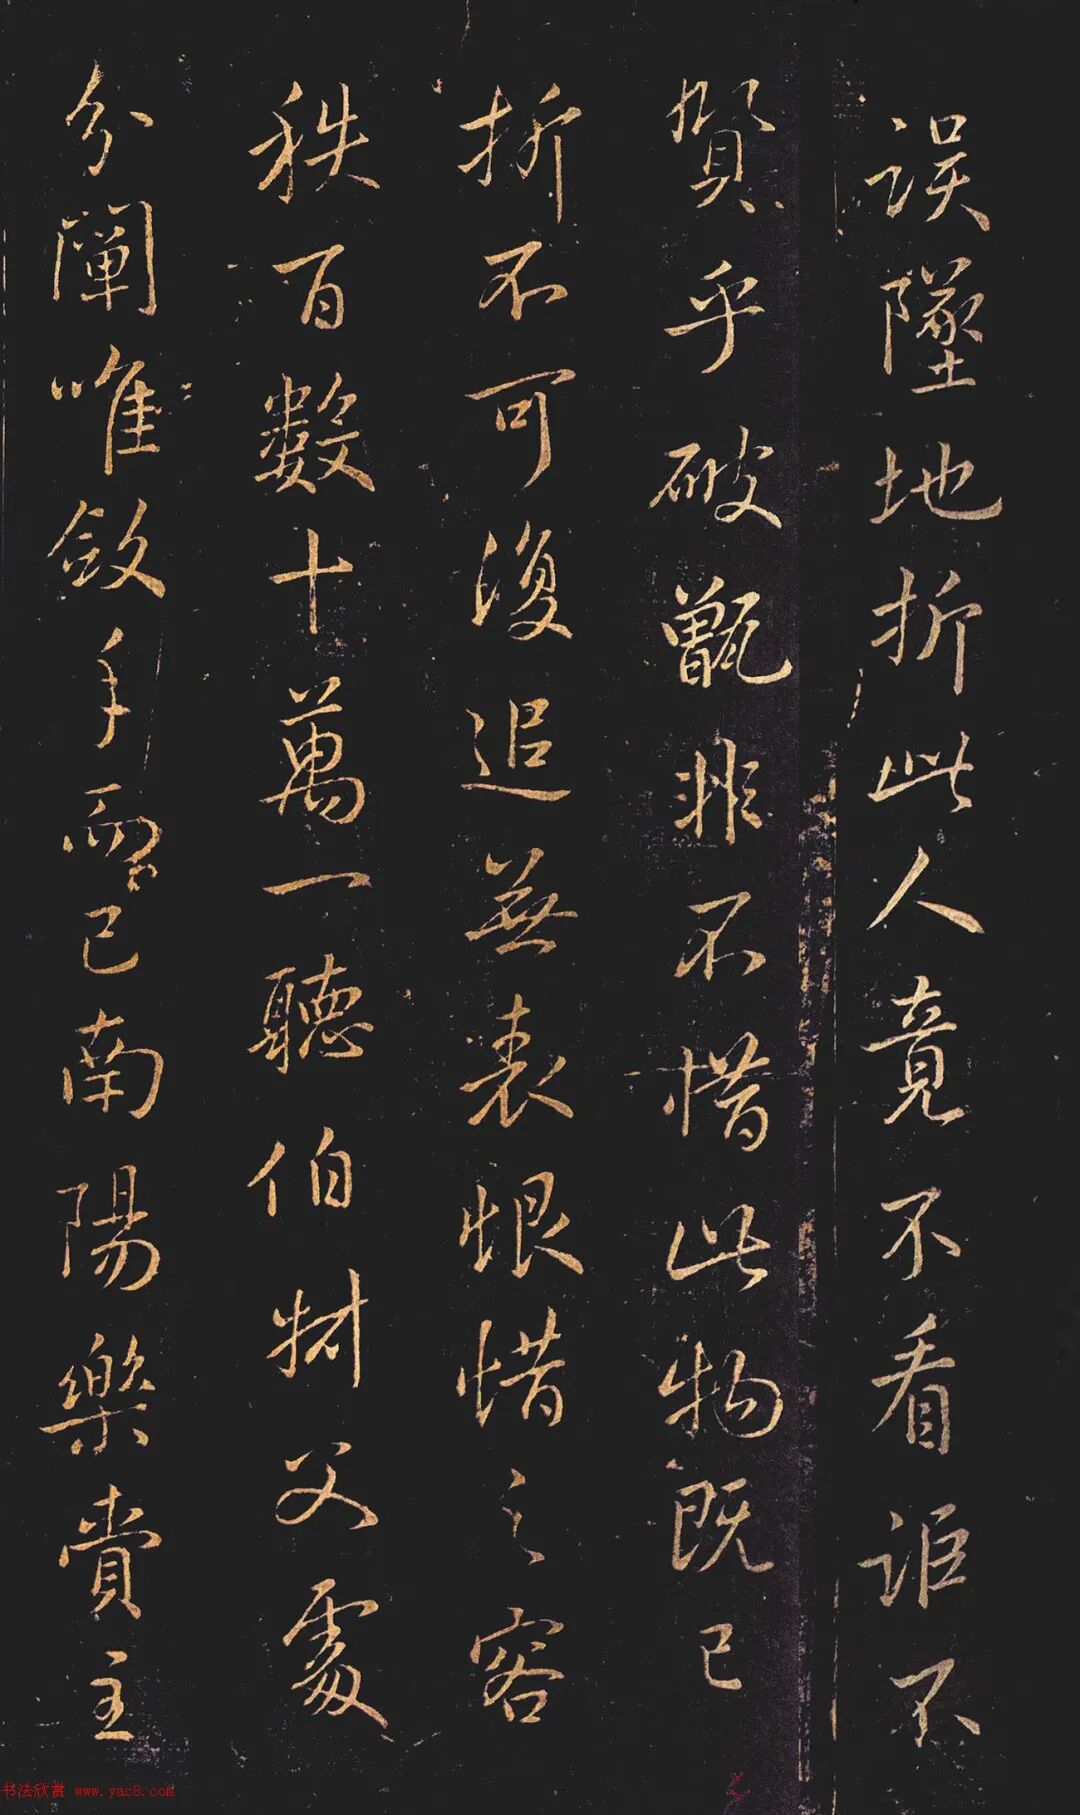 誤墜地折此人竟不看詎不
賢乎破甑非不惜此物既已
折不可復追無表恨惜之容
秩百數十萬一聽伯財父處
分闡唯斂手而已南陽樂賣主
书法欣赏 www.yac8.com